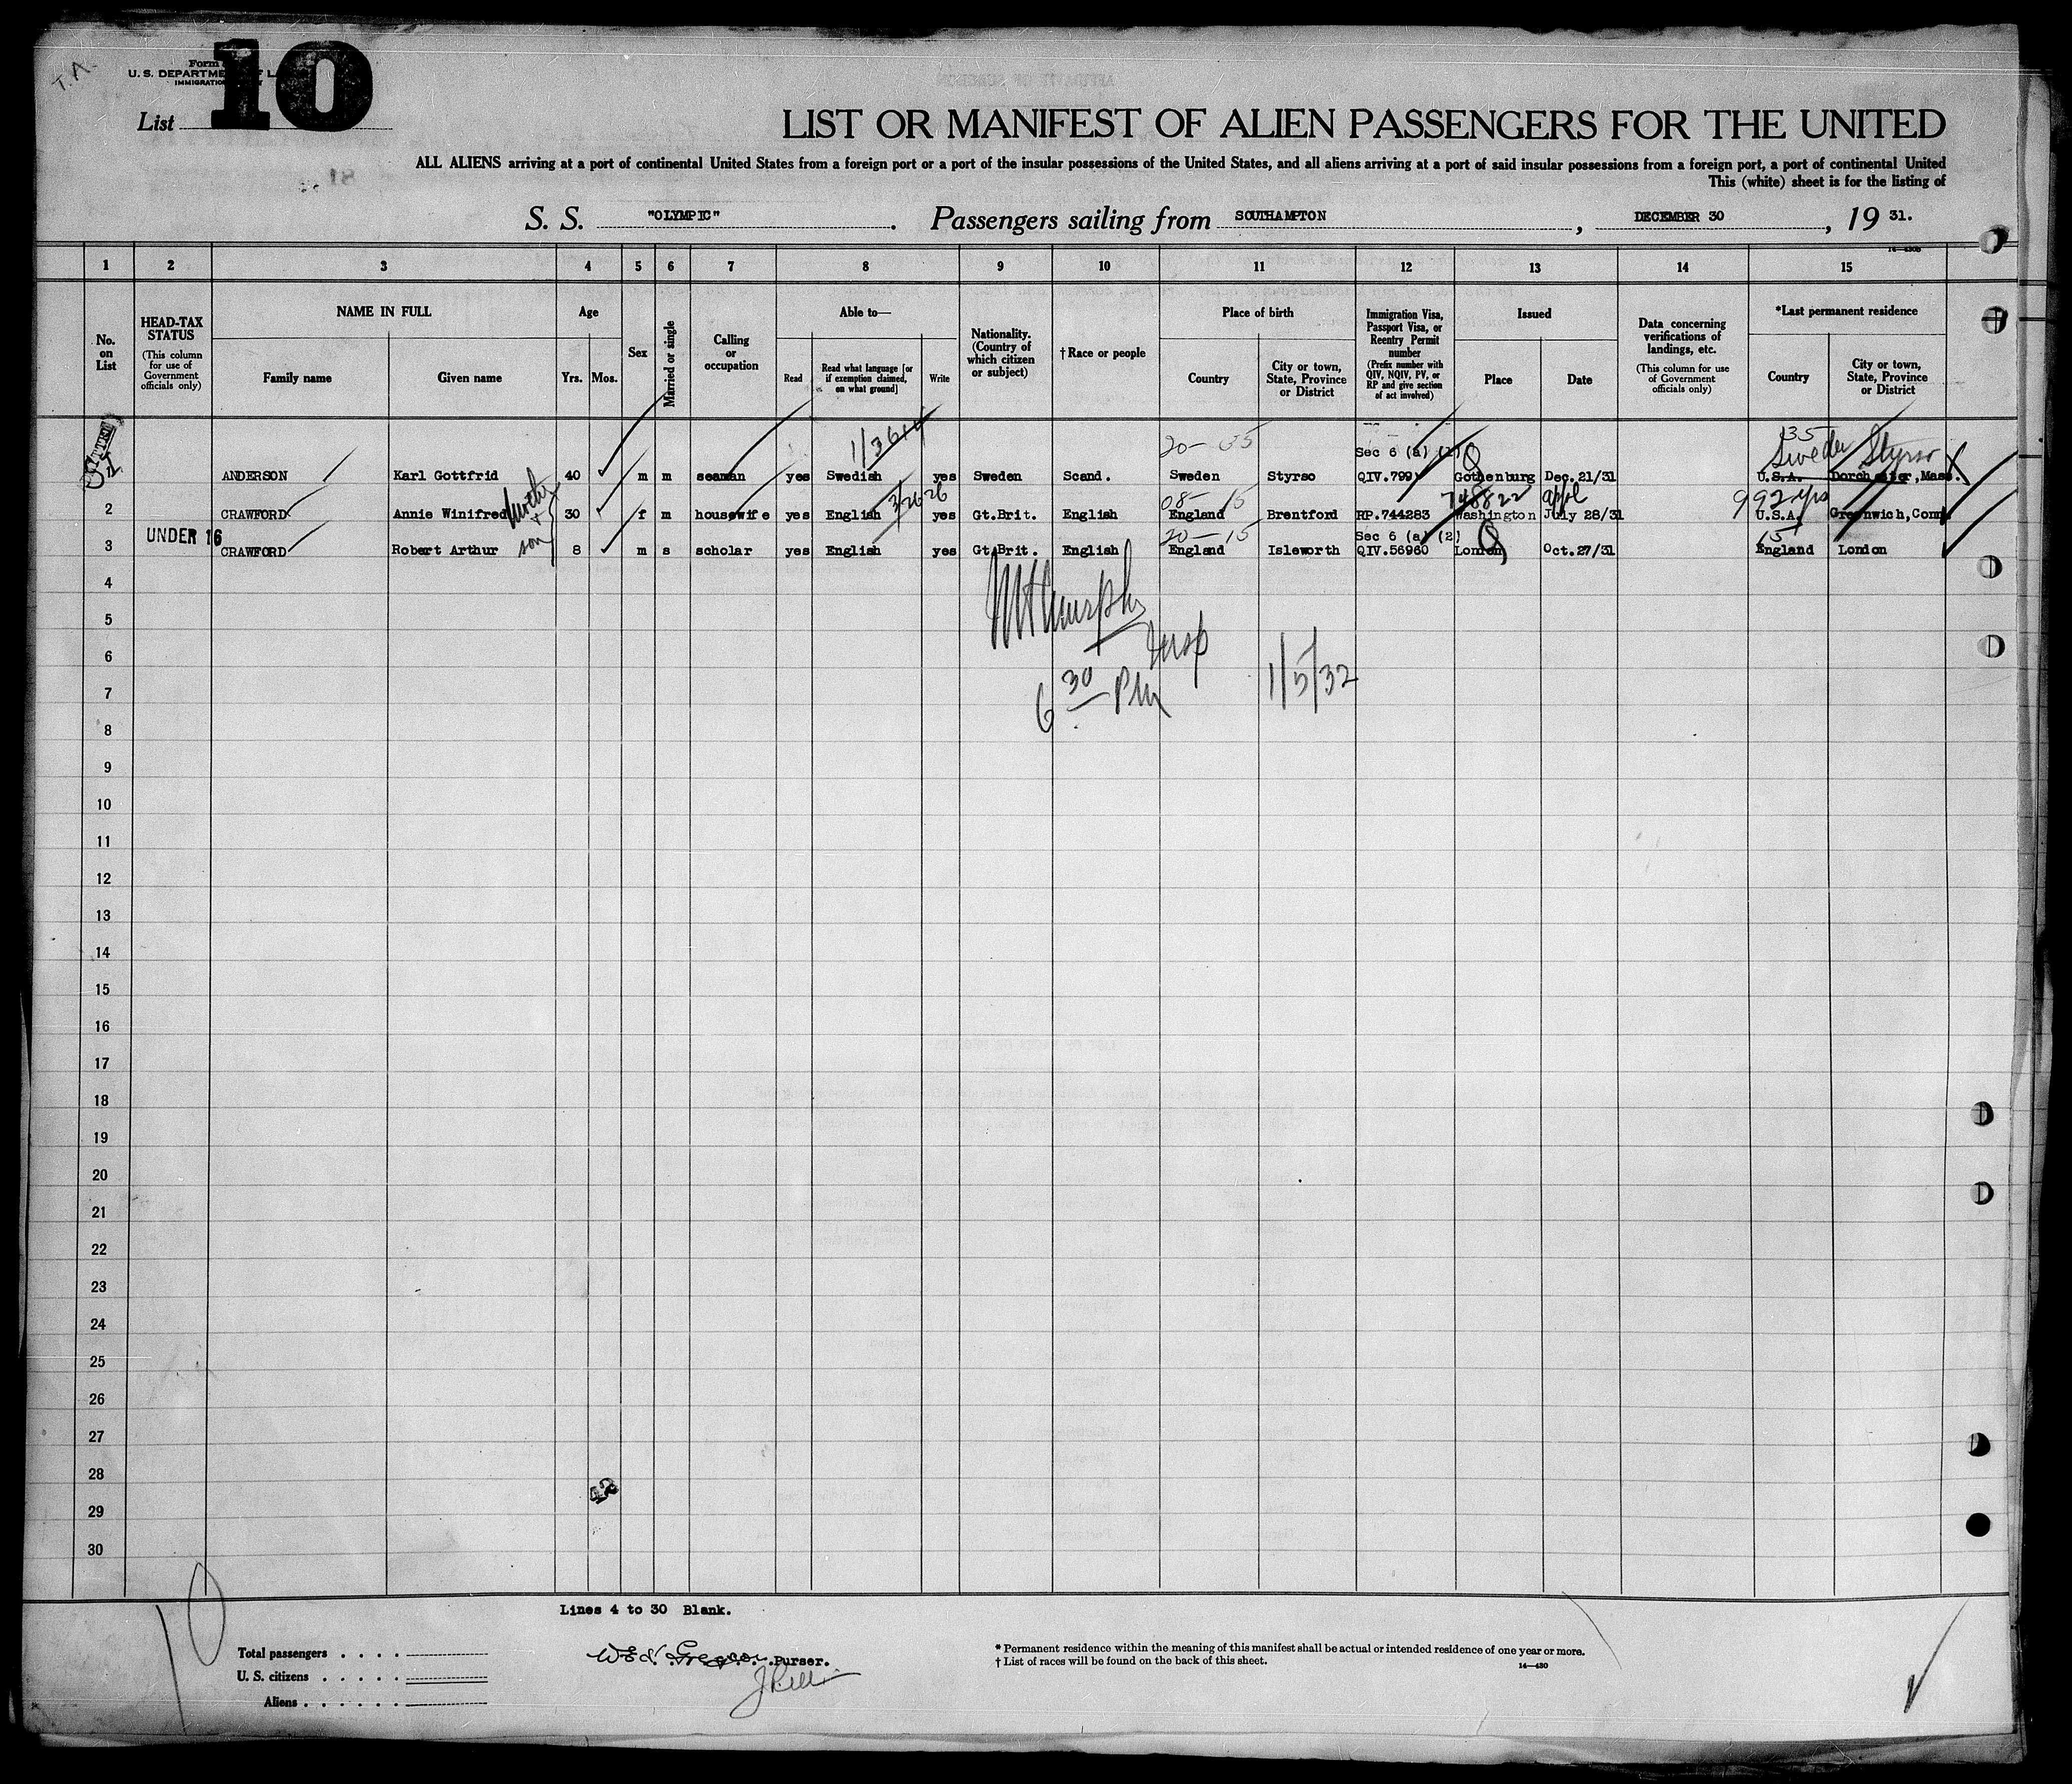 10
Form
U. S. DEPARTME
IMMIGRATIO
List
LIST OR MANIFEST OF ALIEN PASSENGERS FOR THE UNITED
ALL ALIENS arriving at a port of continental United States from a foreign port or a port of the insular possessions of the United States, and all aliens arriving at a port of said insular possessions from a foreign port, a port of continental United
This (white) sheet is for the listing of
S. S. "OLYMPIC". Passengers sailing from SOUTHAMPTON, DECEMBER 30, 19 31.
1 2 3 4 5 6 7 8 9 10 11 12 13 14 15
No. on List
HEAD-TAX STATUS (This column for use of Government officials only)
NAME IN FULL
Family name Given name
Age
Yrs. Mos.
Sex
Married or single
Calling or occupation
Able to—
Read
Read what language [or if exemption claimed, on what ground]
Write
Nationality. (Country of which citizen or subject)
†Race or people
Place of birth
Country
City or town, State, Province or District
Immigration Visa, Passport Visa, or Reentry Permit number (Prefix number with QIV, NQIV, PV, or RP and give section of act involved)
Issued
Place Date
Data concerning verifications of landings, etc. (This column for use of Government officials only)
*Last permanent residence
Country
City or town, State, Province or District
20— 35 Sec 6 (a) (2) Q 35 Sweden Styrso
ANDERSON Karl Gottfrid 40 m m seaman yes Swedish yes Sweden Scand. Sweden Styrso QIV.799 Gothenburg Dec.21/31 U.S.A. Dorchester, Mass.
Mother & son
3/26 26 08— 15 748822 appl 992 yrs
2 CRAWFORD Annie Winifred 30 f m housewife yes English yes Gt.Brit. English England Brentford RP.744283 Washington July 28/31 U.S.A. Greenwich, Conn.
UNDER 16 20—15 Sec 6 (a) (2) Q 15
3 CRAWFORD Robert Arthur 8 m s scholar yes English yes Gt.Brit. English England Isleworth QIV.56960 London Oct.27/31 England London
4
5
Murphy
6 Insp
7 6 30 PM 1/5/32
8
9
10
11
12
13
14
15
16
17
18
19
20
21
22
23
24
25
26
27
28
29
30
10
Lines 4 to 30 Blank.
Total passengers
U. S. citizens
Aliens
Purser.
* Permanent residence within the meaning of this manifest shall be actual or intended residence of one year or more.
† List of races will be found on the back of this sheet.
14—430